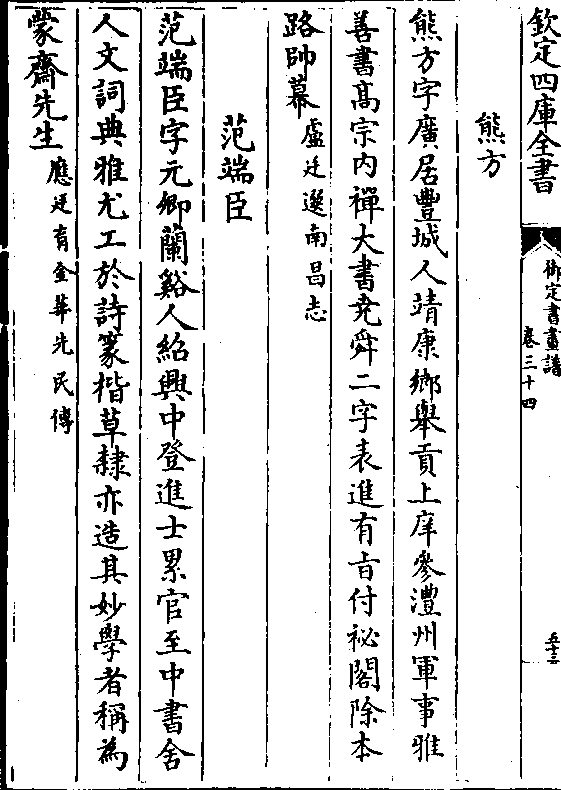 欽定四庫全書
御定書畫譜
卷三十四
五十三
熊方
熊方字廣居豐城人靖康鄉舉貢上庠參澧州軍事雅
善書高宗内禪大書堯舜二字表進有旨付祕閣除本
路帥幕盧廷選南昌志
范端臣
范端臣字元卿蘭谿人紹興中登進士累官至中書舍
人文詞典雅尤工於詩篆楷草隸亦造其妙學者稱為
蒙齋先生應廷育金華先民傳